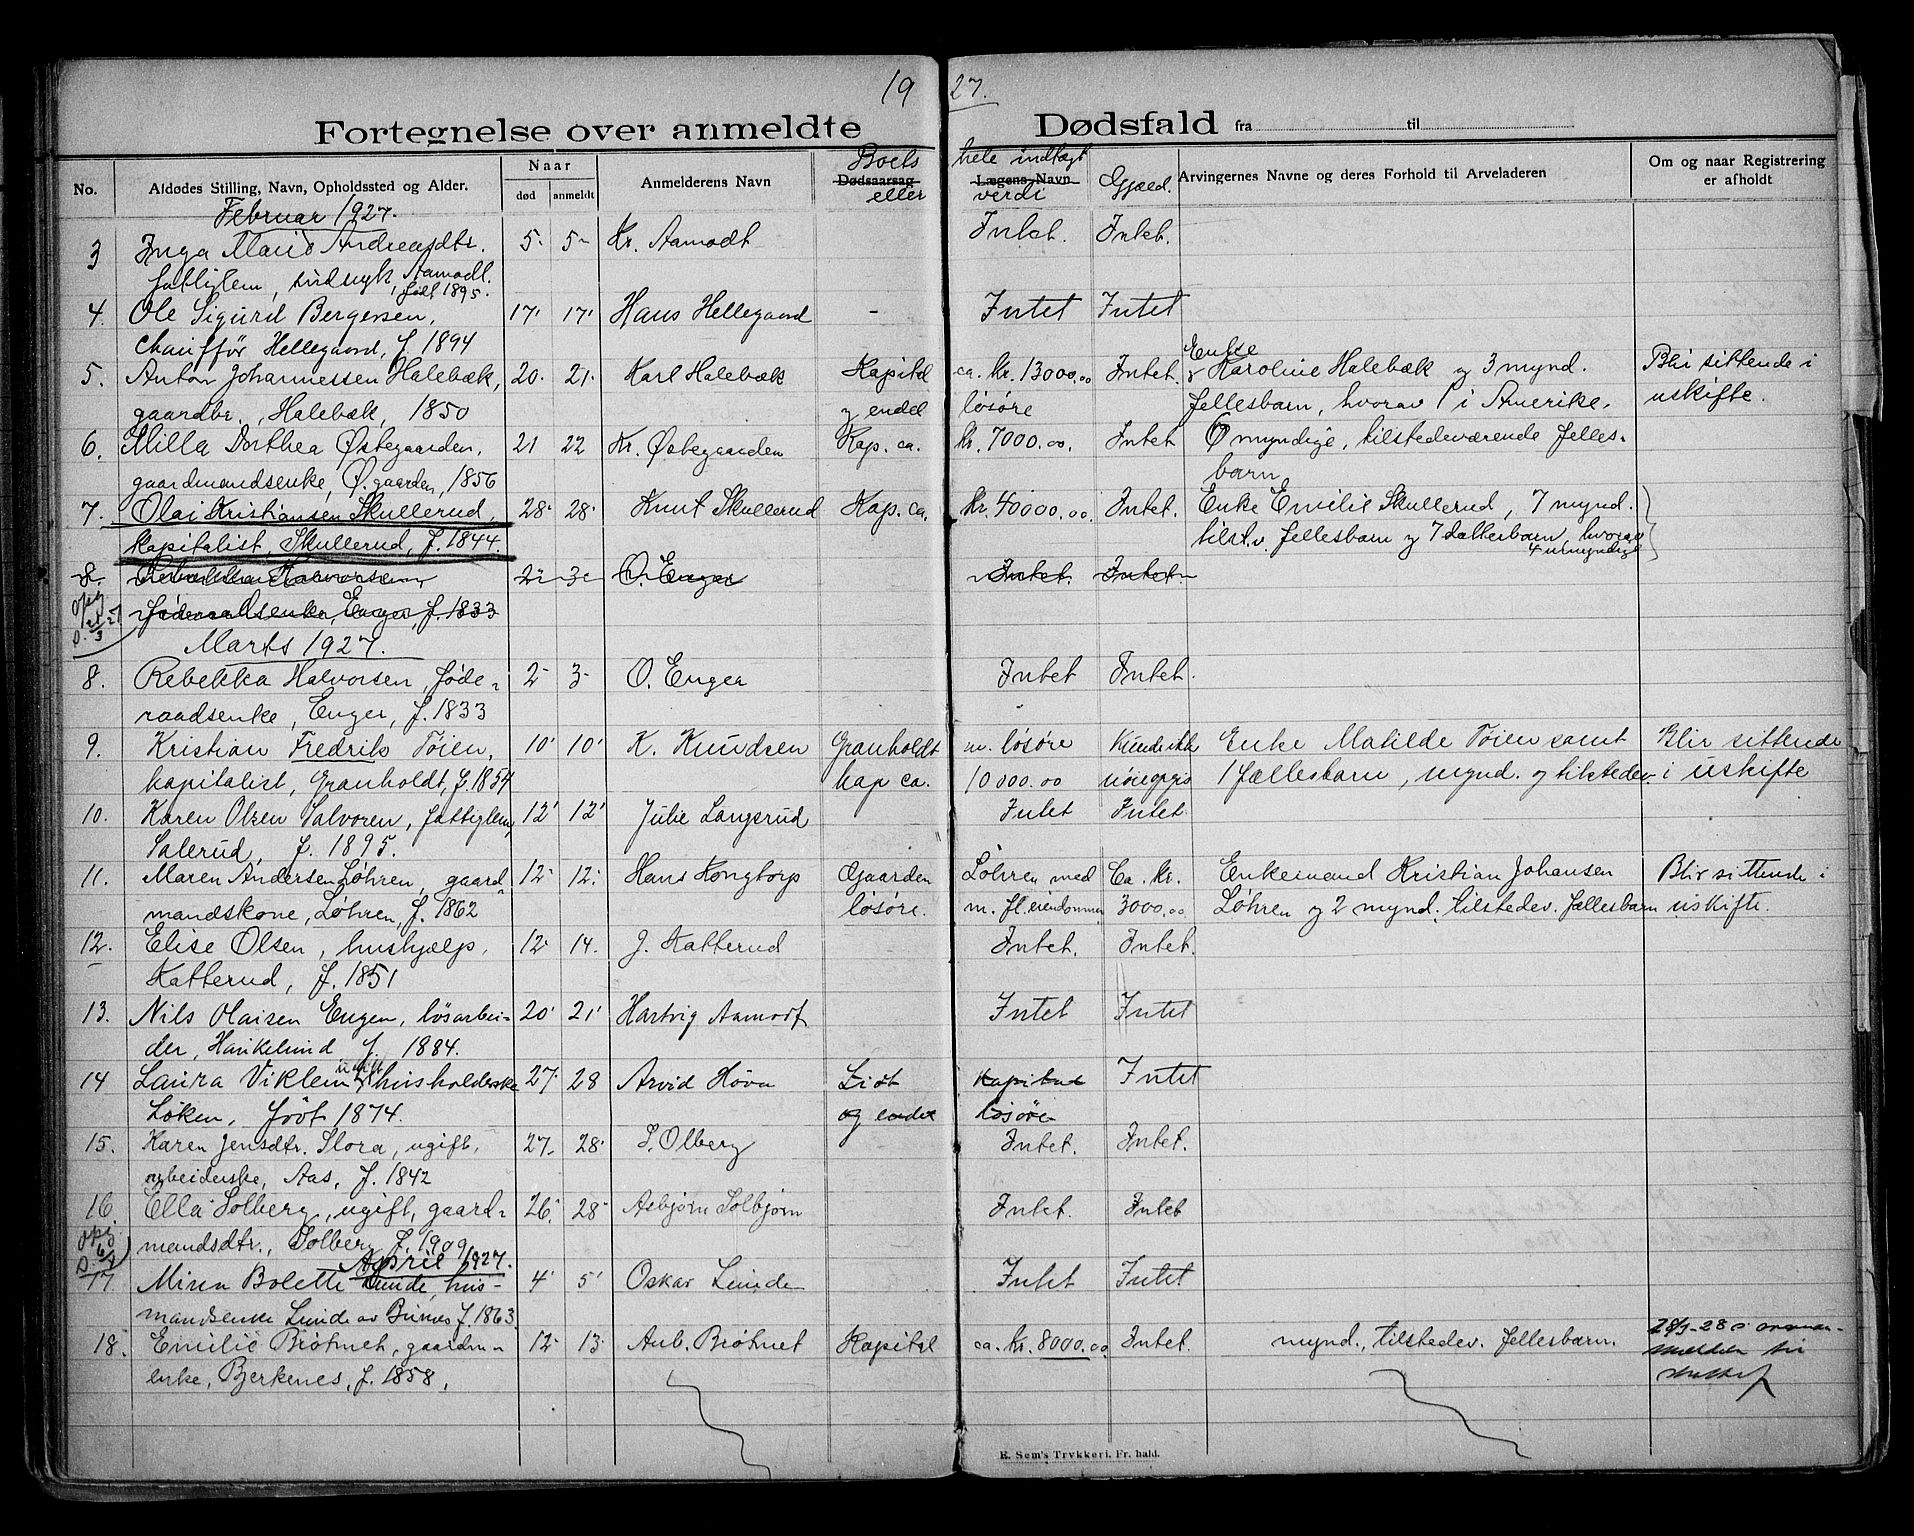 19 27.
Fortegnelse over anmeldte Dødsfald fra til
No. Afdødes Stilling, Navn, Opholdssted og Alder. Naar død anmeldt Anmelderens Navn Dødsaarsag Boets eller Lægens Navn hele indtægt verdi Gjæld. Arvingernes Navne og deres Forhold til Arveladeren Om og naar Registrering er afholdt
Februar 1927.
3 Inga Marie Andreasdtr. 5- 5- Kr. Aamodt Intet. Intet.
fattiglem, sindsyk, Aamodt. født 1895.
4. Ole Sigurd Bergersen, 17' 17' Hans Hellegaard - Intet Intet
Chauffør Hellegaard, f. 1894
5. Anton Johannessen Halebæk, 20. 21. Karl Halebæk Kapital ca. kr. 13000.00 Intet. Enke Karoline Halebæk og 3 mynd. Blir sittende i
gaardbr., Halebæk, 1850 og endel løsöre fellesbarn, hvorav 1 i Amerike. uskifte.
6. Milla Dorthea Østegaarden, 21 22 Kr. Østegaarden Kap. ca. kr. 7000.00. Intet 6 myndige, tilstedeværende felles-
gaardmandsenke, Ø.gaarden, 1856 barn
7. Olai Kristiansen Skullerud, 28- 28- Knut Skullerud Kap. ca. kr. 40000.00. Intet. Enke Emilie Skullerud, 7 mynd.
kapitalist, Skullerud, f. 1844. tilst.v. fellesbarn og 7 datterbarn, hvorav 4 umyndige
8. Rebekka Halvorsen 2- 3- O. Enger Intet. Intet
føderaadsenke, Enger, f. 1833
Marts 1927.
8. Rebekka Halvorsen, føde- 2- 3- O. Enger Intet Intet.
raadsenke, Enger, f. 1833
9. Kristian Fredrik Tøien, 10' 10' K. Knudsen Granholdt m. løsöre Kunde ikke Enke Matilde Tøien samt Blir sittende
kapitalist, Granholdt, f. 1854 kap ca. 10000.00 1 fællesbarn, mynd. og tilstedev. i uskifte
10. Karen Olsen Salvoren, fattiglem, 12' 12' Julie Langsrud Intet Intet.
Salerud, f. 1895.
11. Maren Andersen Løhren, gaard 12- 12. Hans Kongtorp Gaarden Løhren med Ca. kr. Enkemand Kristian Johansen Blir sittende i
mandskone, Løhren, f. 1862 løsöre. m. fl. eiendommer 3000.00 Løhren og 2 mynd. tilstedev. fellesbarn uskifte.
12. Elise Olsen, hushjælp, 12- 14. J. Katterud Intet. Intet.
Katterud, f. 1851
13. Nils Olaisen Engen, løsarbei- 20' 21' Hartvig Aamodt Intet Intet
der, Haukelund f. 1884.
14 Laura Viklem ugift husholderske 27. 28 Arvid Høva Lidt Kapital Intet
Løken, født 1874. og endel løsöre
15. Karen Jensdtr. Slora, ugift, 27- 28' S. Olberg Intet. Intet.
arbeiderske, Aas, f. 1842
16. Ella Solberg, ugift, gaard- 26. 28- Asbjørn Solbjørn Intet. Intet
mandsdtr., Solberg f. 1909
April 1927.
17. Mina Bolette Lunde, hus- 4' 5' Oskar Lunde Intet Intet
mandsenke Lunde av Bunes f. 1863.
18. Emilie Brøtnet, gaardm- 12- 13. Anb. Brøtnet Kapital ca. kr. 8000.00 Intet. mynd., tilstedev. fellesbarn.
enke, Bjerkenes, f. 1858,
E. Sem's Trykkeri, Fr.hald.